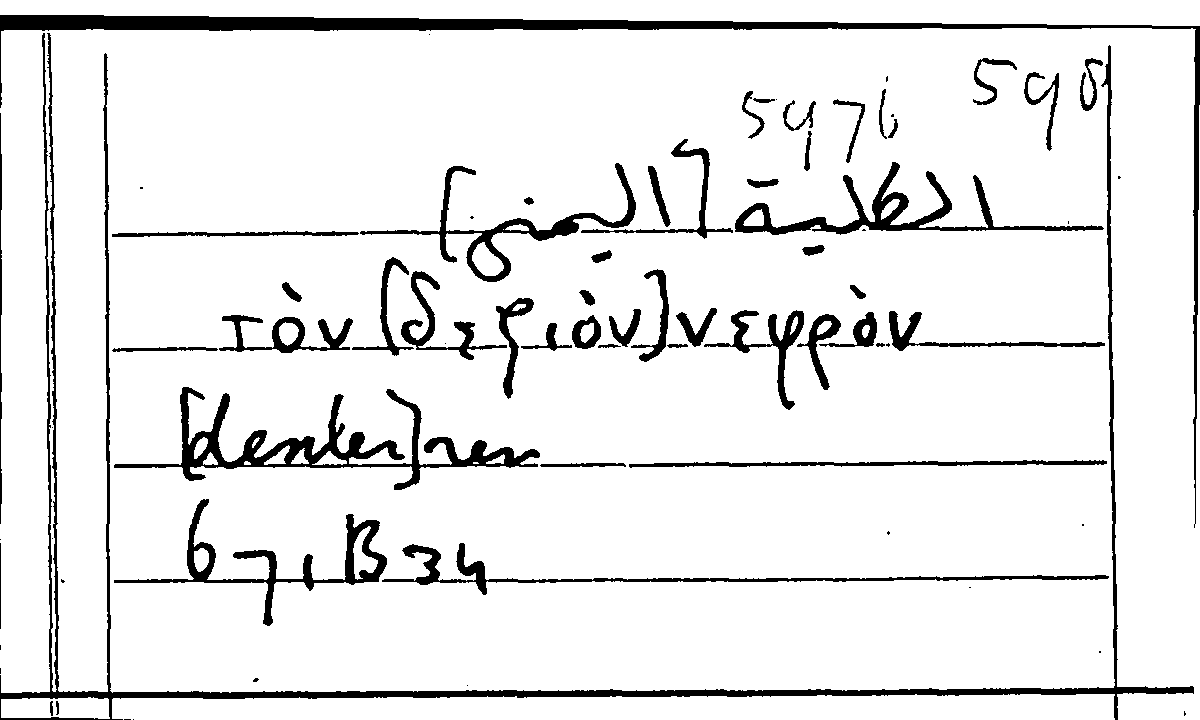 598
5976
الكلية [اليمنى]
τὸν [δεξιὸν] νεφρὸν
[dexter] ren
671, B34